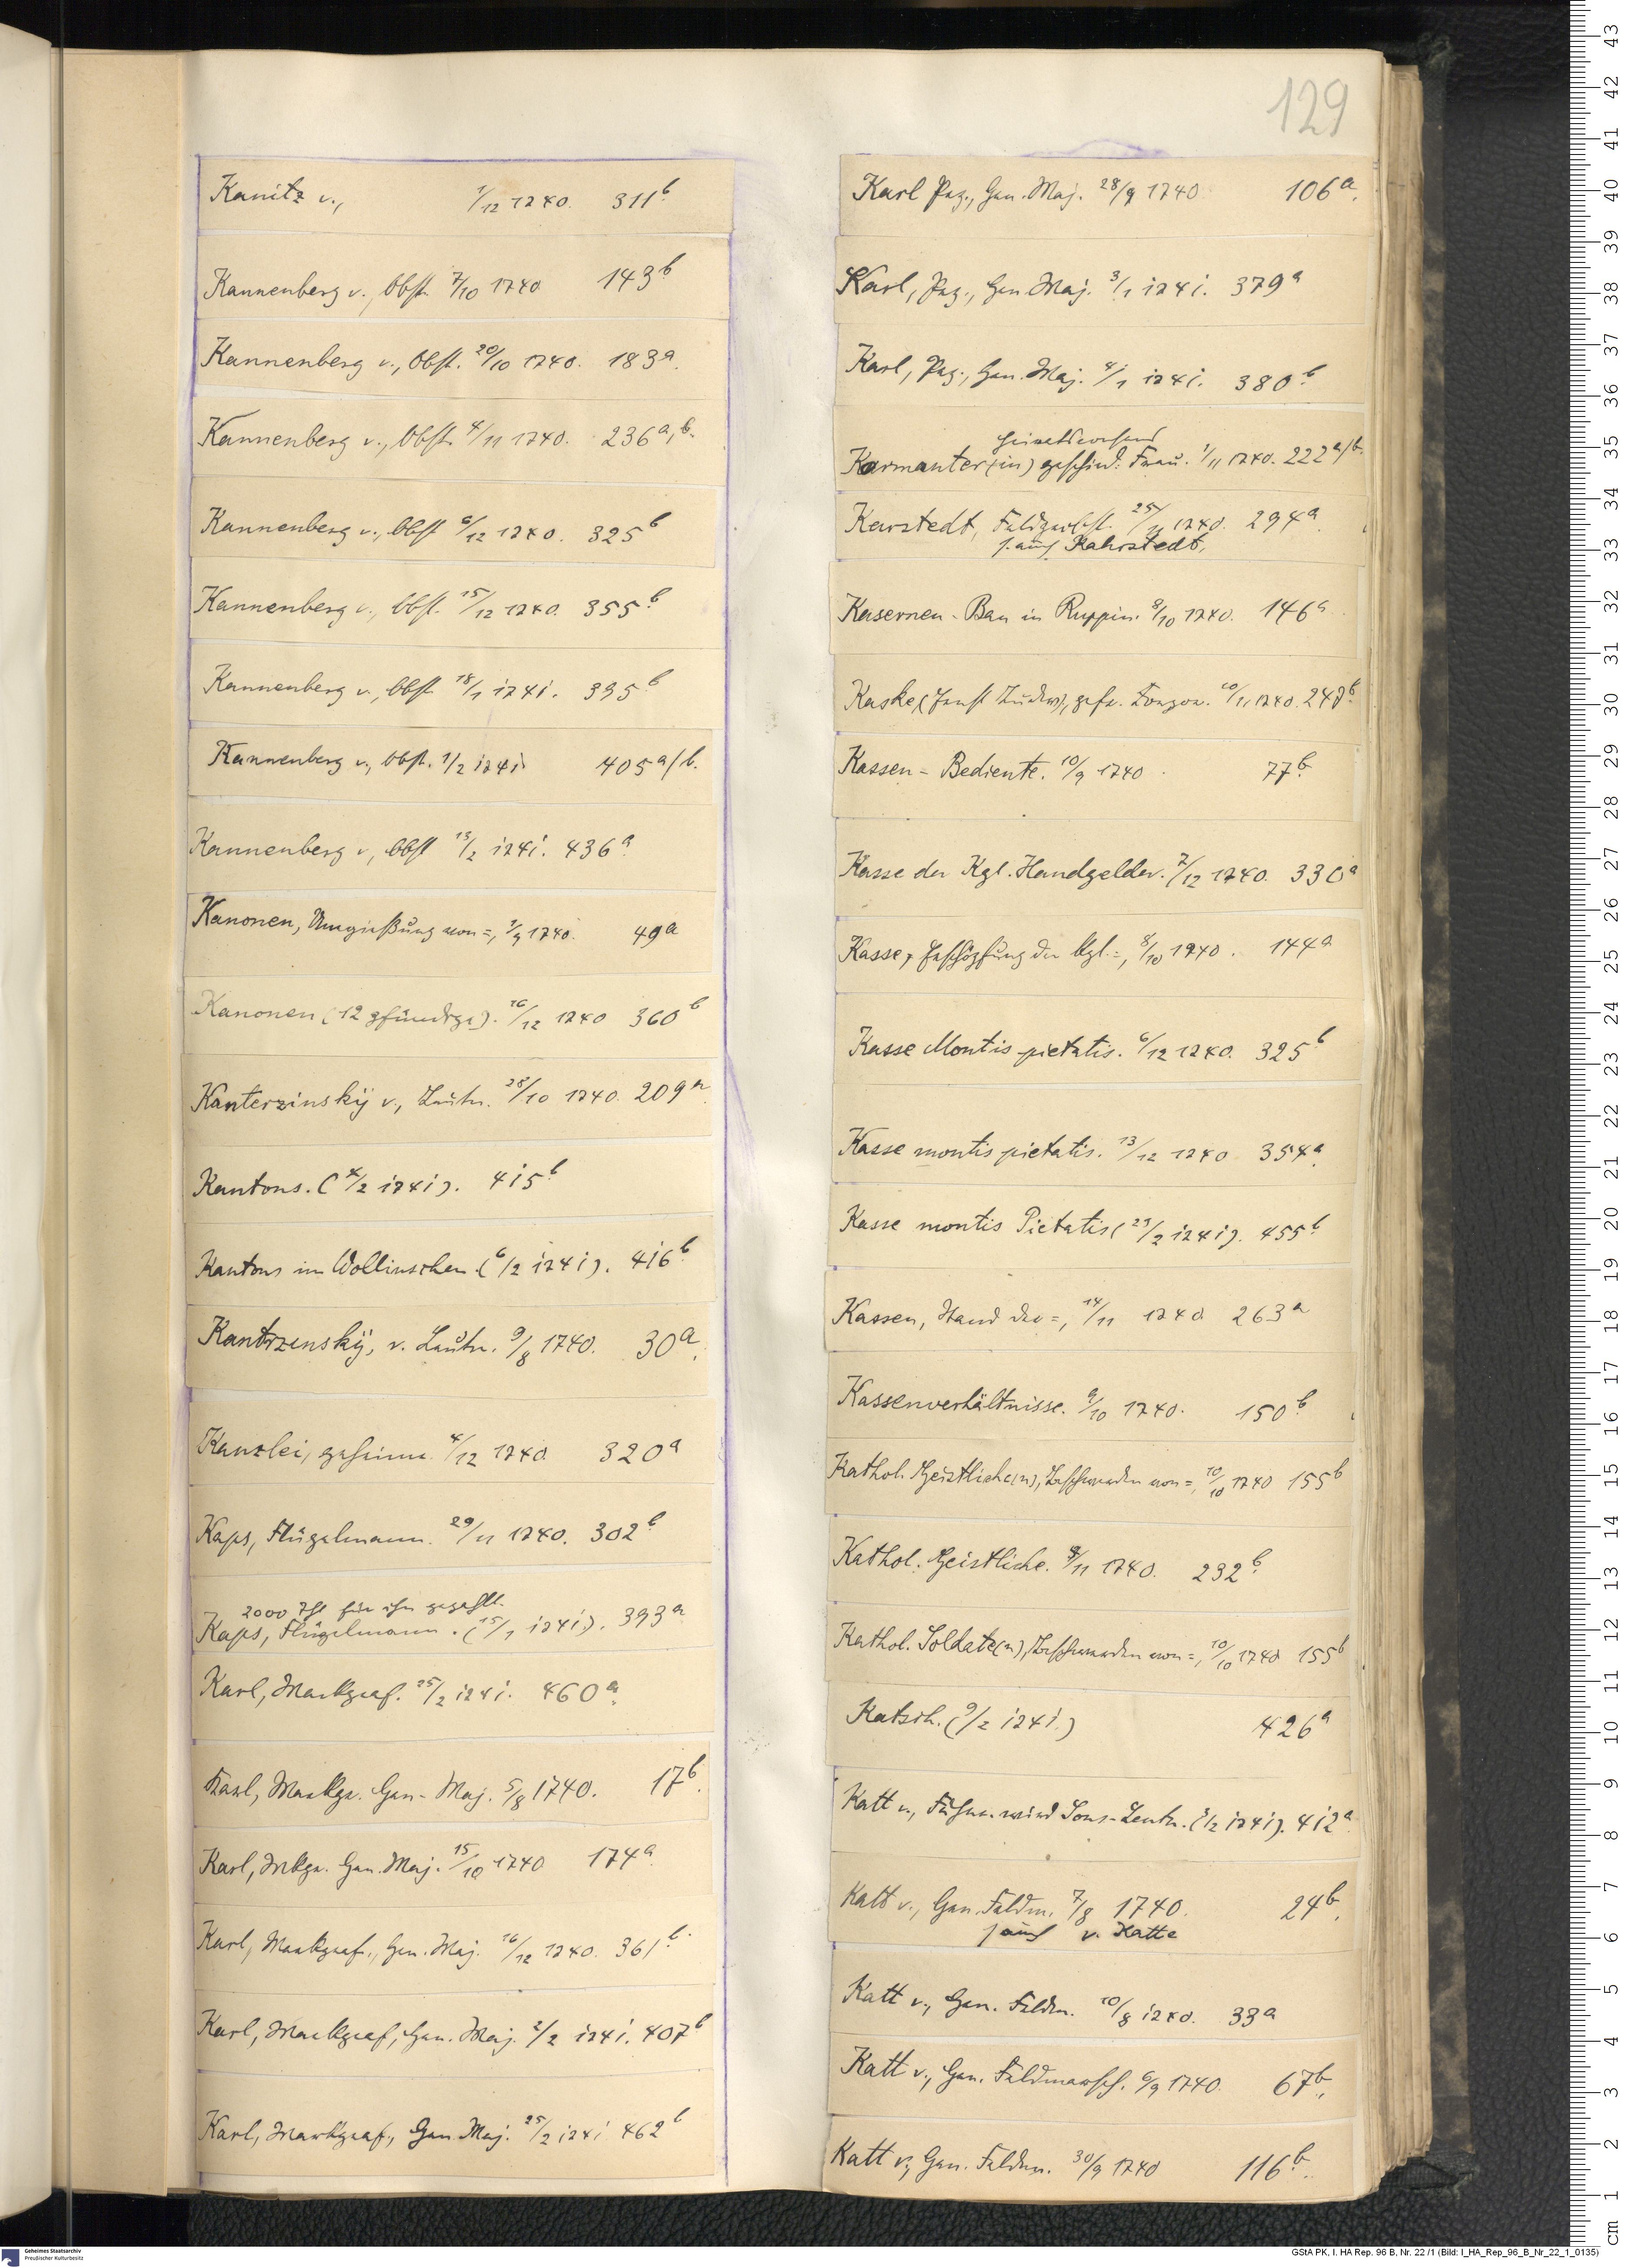 129
Kanitz v., 1/12 1740. 311b.
Kannenberg v., Obst. 7/10 1740 143b
Kannenberg v., Obst. 20/10 1740. 183a.
Kannenberg v., Obst. 4/11 1740. 236a,b.
Kannenberg v., Obst 6/12 1740. 325b
Kannenberg v., Obst. 15/12 1740. 355b.
Kannenberg v., Obst 18/1 1741. 395b
Kannenberg v., Obst. 1/2 1741. 405a/b.
Kannenberg v., Obst 13/2 1741. 436a.
Kanonen, Umgießung von =, 1/9 1740. 49a
Kanonen (12 pfündige). 16/12 1740 360b
Kanterzinskÿ v., Leutn. 28/10 1740. 209a.
Kantons. (4/2 1741). 415b.
Kantons im Wollinschen. (6/2 1741). 416b.
Kantrzenskÿ, v. Leutn. 9/8 1740. 30a.
Kanzlei, geheime. 4/12 1740. 320a
Kaps, Flügelmann. 29/11 1740. 302b.
2000 Thl für ihn gezahlt.
Kaps, Flügelmann. (15/1 1741). 393a.
Karl, Markgraf. 25/2 1741. 460a.
Karl, Markgr. Gen- Maj. 5/8 1740. 17b.
Karl, Mkgr. Gen. Maj. 15/10 1740 174a.
Karl, Markgraf., Gen. Maj. 16/12 1740. 361b.
Karl, Markgraf, Gen. Maj. 2/2 1741. 407b
Karl, Markgraf., Gen. Maj. 25/2 1741 462b
Karl Prz., Gen. Maj. 28/9 1740. 106a.
Karl, Prz., Gen. Maj. 3/1 1741. 379a
Karl, Prz., Gen. Maj. 4/1 1741. 380b
Karmanter(in) geschied. Frau. 1/11 1740. 222a/b.
Karstedt, 25/11 1740. 294a.
s. auch Kahrstedt.
Kasernen-Bau in Ruppin. 8/10 1740. 146a.
Kaske, gef. 10/11 1740. 247b.
Kassen-Bediente. 10/9 1740. 77b.
Kasse der Kgl. Handgelder. 7/12 1740. 330a
Kasse, Erschöpfung der kgl. =, 8/10 1740. 144a
Kasse Montis pietatis. 6/12 1740. 325b.
Kasse montis pietatis. 13/12 1740 354a.
Kasse montis Pietatis (23/2 1741). 455b.
Kassen, Stand der =, 14/11 1740 263a
Kassenverhältnisse. 9/10 1740. 150b.
Kathol. Geistliche(n), Beschwerden von =, 10/10 1740 155b
Kathol. Geistliche. 3/11 1740. 232b.
Kathol. Soldate(n), Beschwerden von =, 10/10 1740 155b
Katsch. (9/2 1741.) 426a
Katt v., Fähnr. wird Sous-Leutn. (3/2 1741). 412a.
Katt v., Gen. Feldm. 7/8 1740. 24b.
s. auch v. Katte
Katt v., Gen. Feldm. 10/8 1740. 33a
Katt v., Gen. Feldmarsch. 6/9 1740. 67b.
Katt v., Gen. Feldm. 30/9 1740 116b.
43
42
41
40
39
38
37
36
35
34
33
32
31
30
29
28
27
26
25
24
23
22
21
20
19
18
17
16
15
14
13
12
11
10
9
8
7
6
5
4
3
2
1
cm
Geheimes Staatsarchiv
Preußischer Kulturbesitz
GStA PK, I. HA Rep. 96 B, Nr. 22 /1 (Bild: I_HA_Rep_96_B_Nr_22_1_0135)